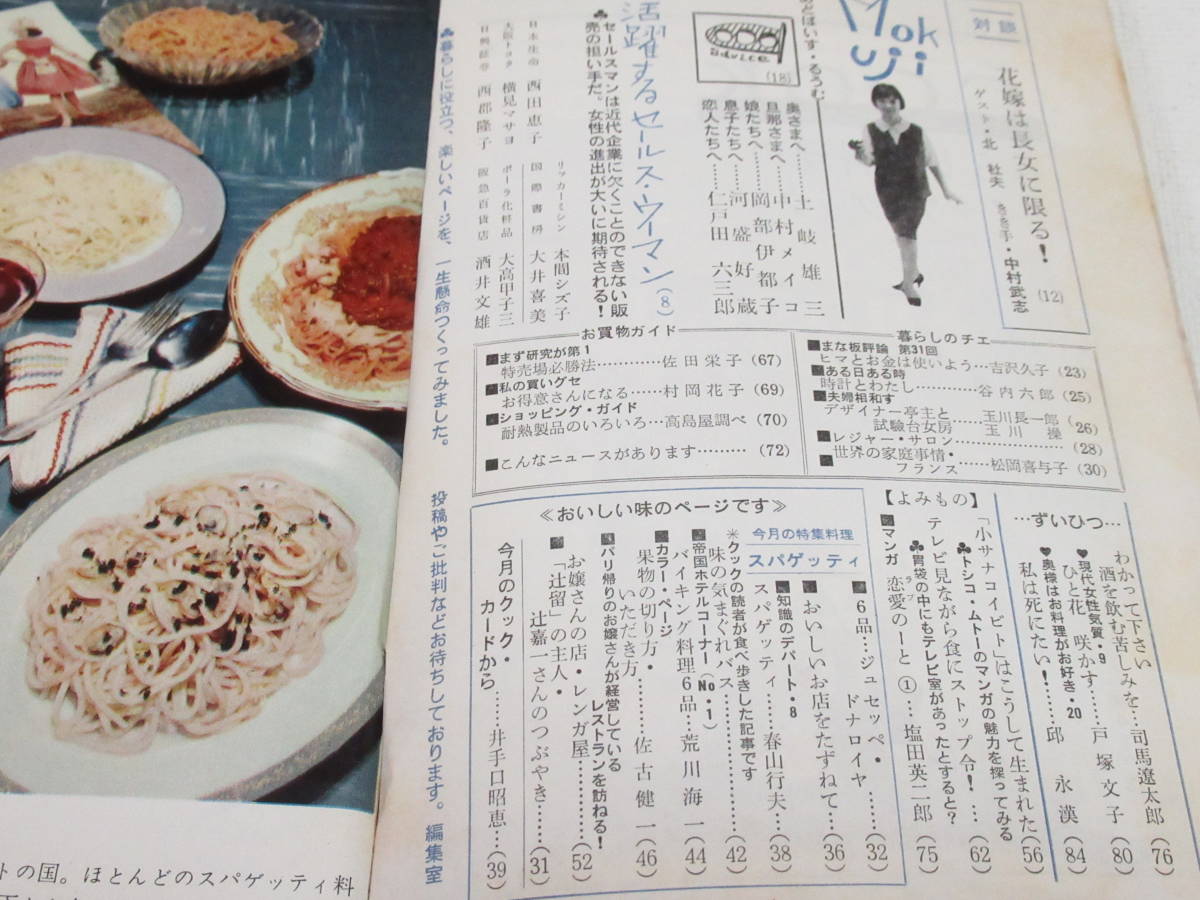 Mokuji
対談
花嫁は長女に限る！
ゲスト・北 杜夫 きき手・中村武志 (12)
あどばいす・るうむ
(18)
奥さまへ……土岐雄三
旦那さまへ…中村メイコ
娘たちへ……岡部伊都子
息子たちへ…河盛好蔵
恋人たちへ…仁戸田六三郎
活躍するセールス・ウーマン (8)
♣セールスマンは近代企業に欠くことのできない販
売の担い手だ。女性の進出が大いに期待される！
日本生命 西田恵子
大阪トヨタ 横見マサヨ
日興証券 西郡隆子
リッカーミシン 本間シズ子
国際書房 大井喜美
ポーラ化粧品 大高甲子三
阪急百貨店 酒井文雄
♣暮らしに役立つ、楽しいページを、一生懸命つくってみました。 投稿やご批判などお待ちしております。 編集室
暮らしのチエ
■まな板評論 第31回
ヒマとお金は使いよう…吉沢久子 (23)
■ある日ある時
時計とわたし………谷内六郎 (25)
■夫婦相和す
デザイナー亭主と 玉川長一郎
試験台女房 玉川 操 (26)
■レジャー・サロン……………… (28)
■世界の家庭事情・
フランス……松岡喜与子 (30)
お買物ガイド
■まず研究が第1
特売場必勝法…………佐田栄子 (67)
■私の買いグセ
お得意さんになる……村岡花子 (69)
■ショッピング・ガイド
耐熱製品のいろいろ…高島屋調べ (70)
■こんなニュースがあります……… (72)
…ずいひつ…
わかって下さい
酒を飲む苦しみを…司馬遼太郎 (76)
♥現代女性気質・9
ひと花 咲かす……戸塚文子 (80)
♥奥様はお料理がお好き・20
私は死にたい！……邱 永漢 (84)
【よみもの】
「小サナコイビト」はこうして生まれた (56)
♣トシコ・ムトーのマンガの魅力を探ってみる
テレビ見ながら食にストップ令！… (62)
♣胃袋の中にもテレビ室があったとすると？
■マンガ 恋愛のーと ①…塩田英二郎 (75)
ラブ
≪おいしい味のページです≫
今月の特集料理
スパゲッティ
■6品…ジュセッペ・
ドナロイヤ…… (32)
■おいしいお店をたずねて… (36)
■知識のデパート・8
スパゲッティ……春山行夫… (38)
味の気まぐれバス……………… (42)
＊クックの読者が食べ歩きした記事です
■帝国ホテルコーナー(No・1)
バイキング料理6品…荒川海一 (44)
■カラー・ページ
果物の切り方・
いただき方……佐古健一 (46)
■パリ帰りのお嬢さんが経営している
レストランを訪ねる！
お嬢さんの店・レンガ屋……… (52)
■「辻留」の主人・
辻嘉一さんのつぶやき…… (31)
今月のクック・
カードから……井手口昭恵… (39)
トの国。ほとんどのスパゲッティ料